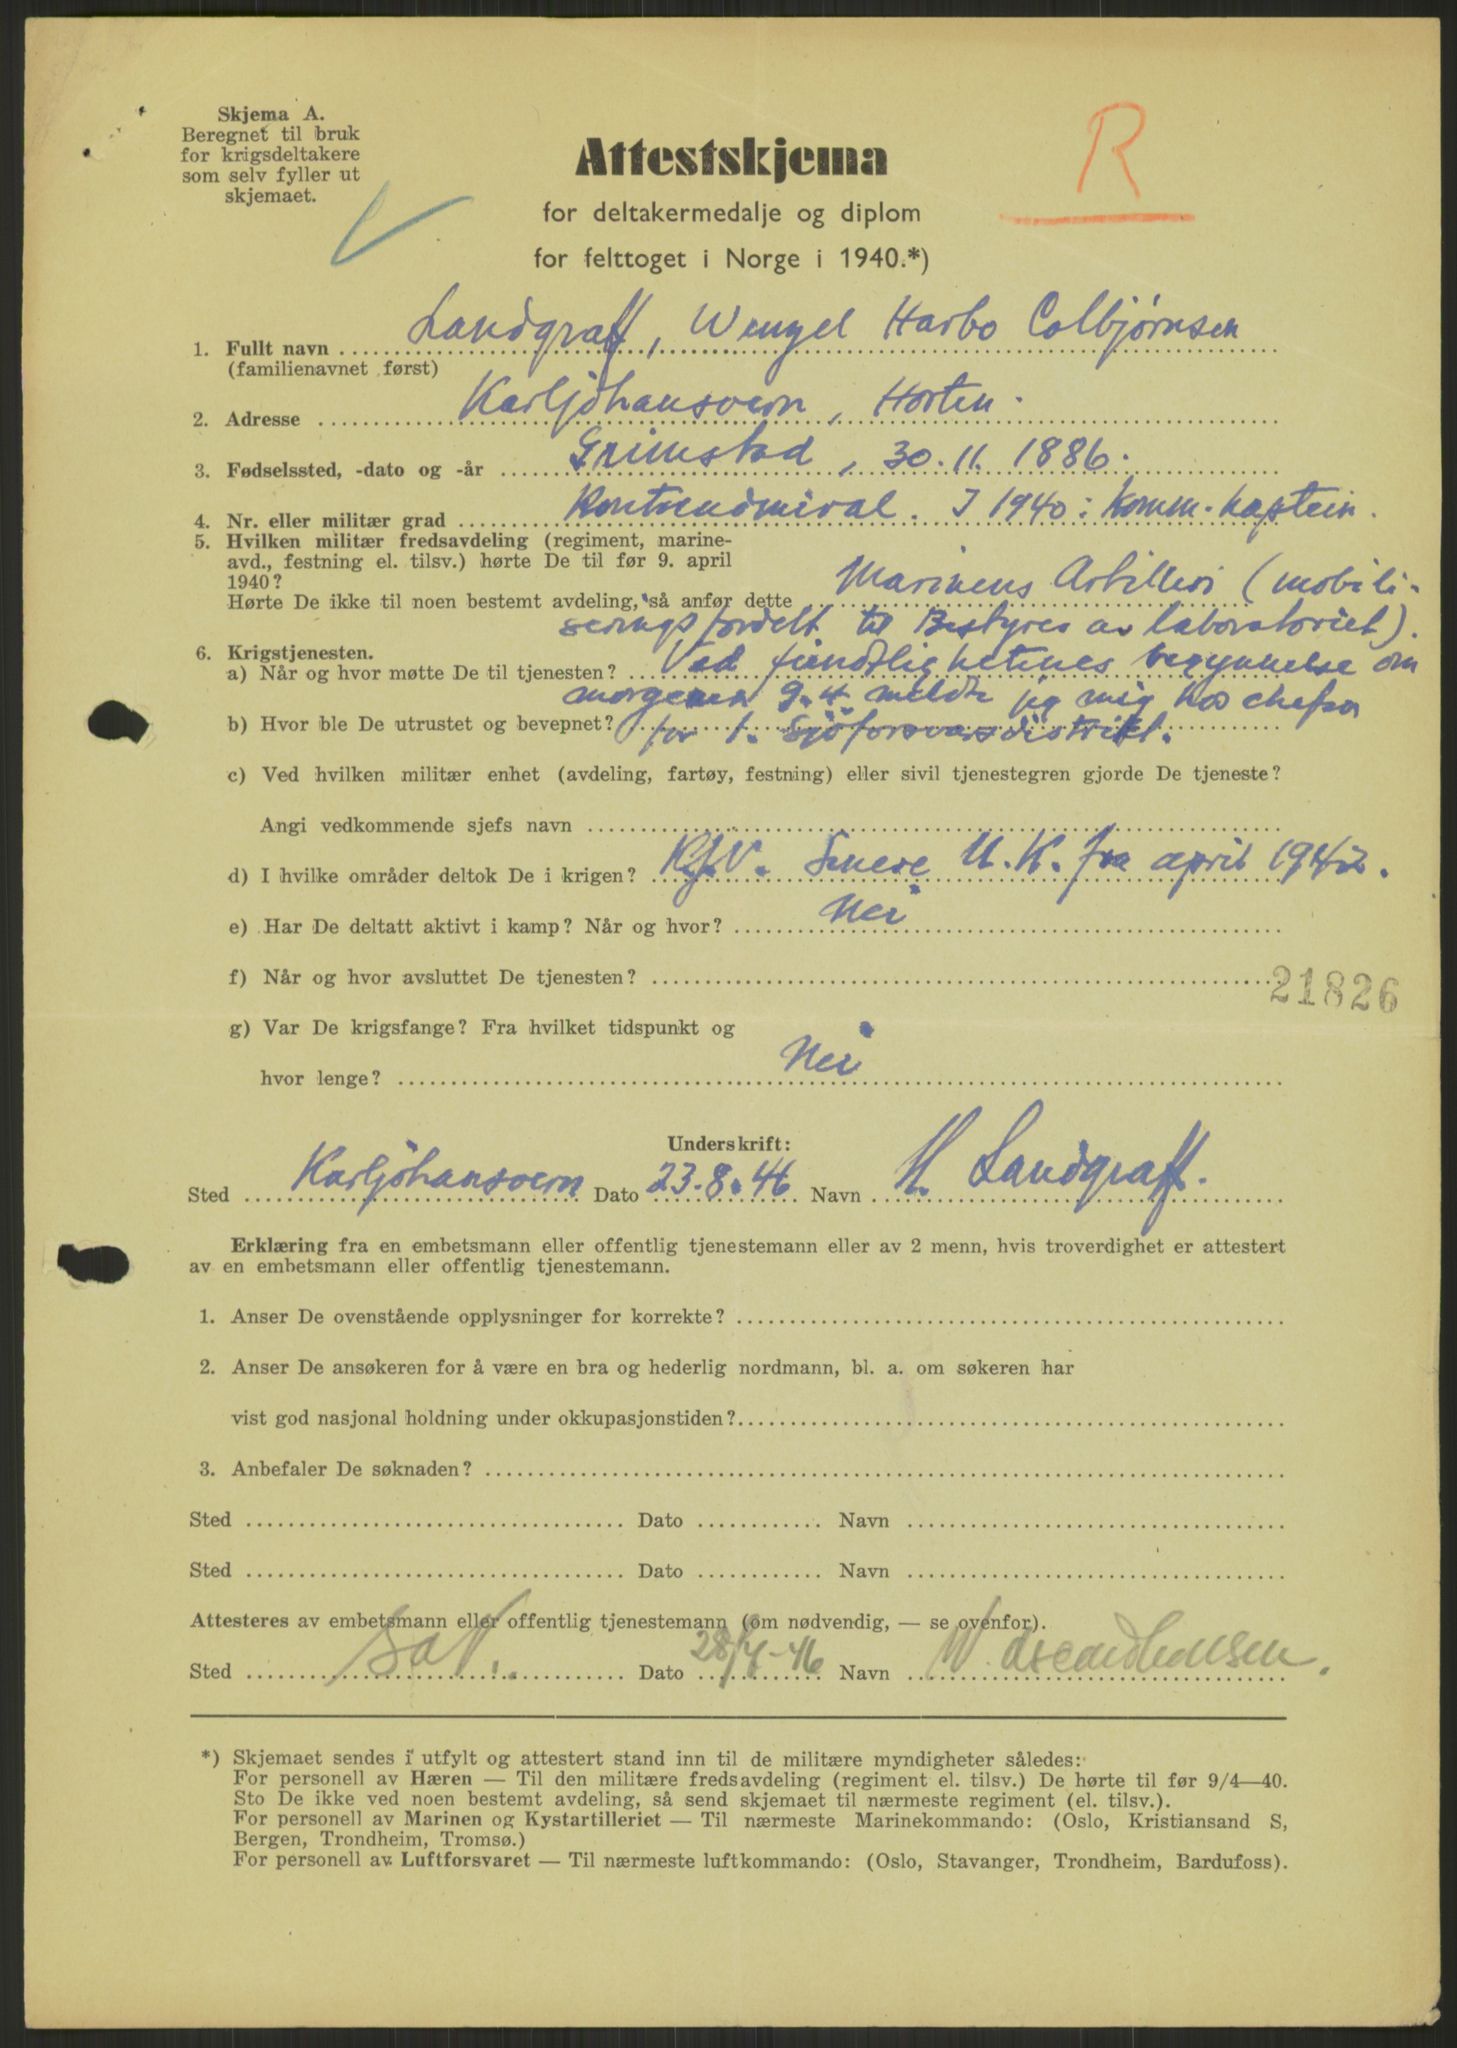 Skjema A.
Beregnet til bruk
for krigsdeltakere
som selv fyller ut
skjemaet.
R
Attestskjema
for deltakermedalje og diplom
for felttoget i Norge i 1940.*)
1. Fullt navn Landgraff, Wenzel Harbo Colbjørnsen
(familienavnet først)
2. Adresse Karljohansvern, Horten.
3. Fødselssted, -dato og -år Grimstad, 30.11.1886.
4. Nr. eller militær grad Kontreadmiral. I 1940: Komm. kaptein.
5. Hvilken militær fredsavdeling (regiment, marine-
avd., festning el. tilsv.) hørte De til før 9. april
1940?
Hørte De ikke til noen bestemt avdeling, så anfør dette Marinens Artilleri (mobili-
seringsfordelt til Bestyrer av laboratoriet).
6. Krigstjenesten.
a) Når og hvor møtte De til tjenesten? Ved fiendtlighetenes begynnelse om
morgenen 9.4. meldte jeg mig hos chefen
b) Hvor ble De utrustet og bevepnet? for 1. Sjøforsvarsdistrikt.
c) Ved hvilken militær enhet (avdeling, fartøy, festning) eller sivil tjenestegren gjorde De tjeneste?
Angi vedkommende sjefs navn
d) I hvilke områder deltok De i krigen? KJV. Senere U.K. fra april 1942.
e) Har De deltatt aktivt i kamp? Når og hvor? Nei
f) Når og hvor avsluttet De tjenesten?
21826
g) Var De krigsfange? Fra hvilket tidspunkt og
hvor lenge? Nei
Underskrift:
Sted Karljohansvern Dato 23.8.46 Navn H. Landgraff.
Erklæring fra en embetsmann eller offentlig tjenestemann eller av 2 menn, hvis troverdighet er attestert
av en embetsmann eller offentlig tjenestemann.
1. Anser De ovenstående opplysninger for korrekte?
2. Anser De ansøkeren for å være en bra og hederlig nordmann, bl. a. om søkeren har
vist god nasjonal holdning under okkupasjonstiden?
3. Anbefaler De søknaden?
Sted Dato Navn
Sted Dato Navn
Attesteres av embetsmann eller offentlig tjenestemann (om nødvendig, — se ovenfor).
Sted Dato Navn
*) Skjemaet sendes i utfylt og attestert stand inn til de militære myndigheter således:
For personell av Hæren — Til den militære fredsavdeling (regiment el. tilsv.) De hørte til før 9/4—40.
Sto De ikke ved noen bestemt avdeling, så send skjemaet til nærmeste regiment (el. tilsv.).
For personell av Marinen og Kystartilleriet — Til nærmeste Marinekommando: (Oslo, Kristiansand S,
Bergen, Trondheim, Tromsø.)
For personell av Luftforsvaret — Til nærmeste luftkommando: (Oslo, Stavanger, Trondheim, Bardufoss).